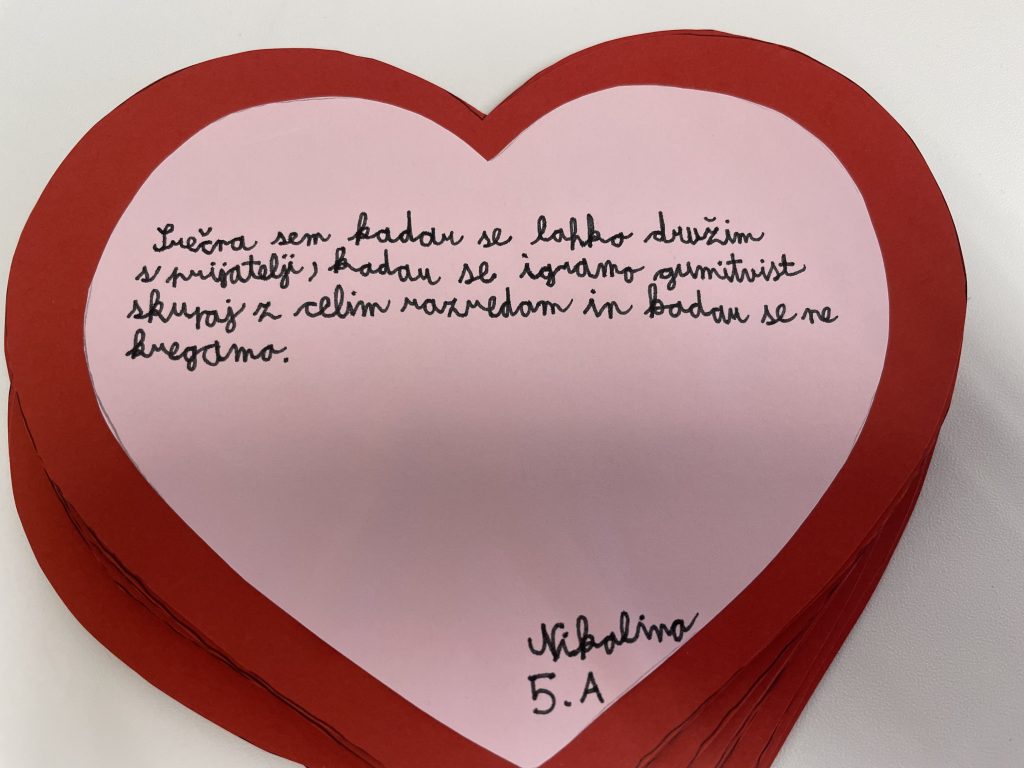 Srečna sem kadar se lahko družim
s prijatelji, kadar se igramo gumitvist
skupaj z celim razredom in kadar se ne
kregamo.
Nikolina
5.A